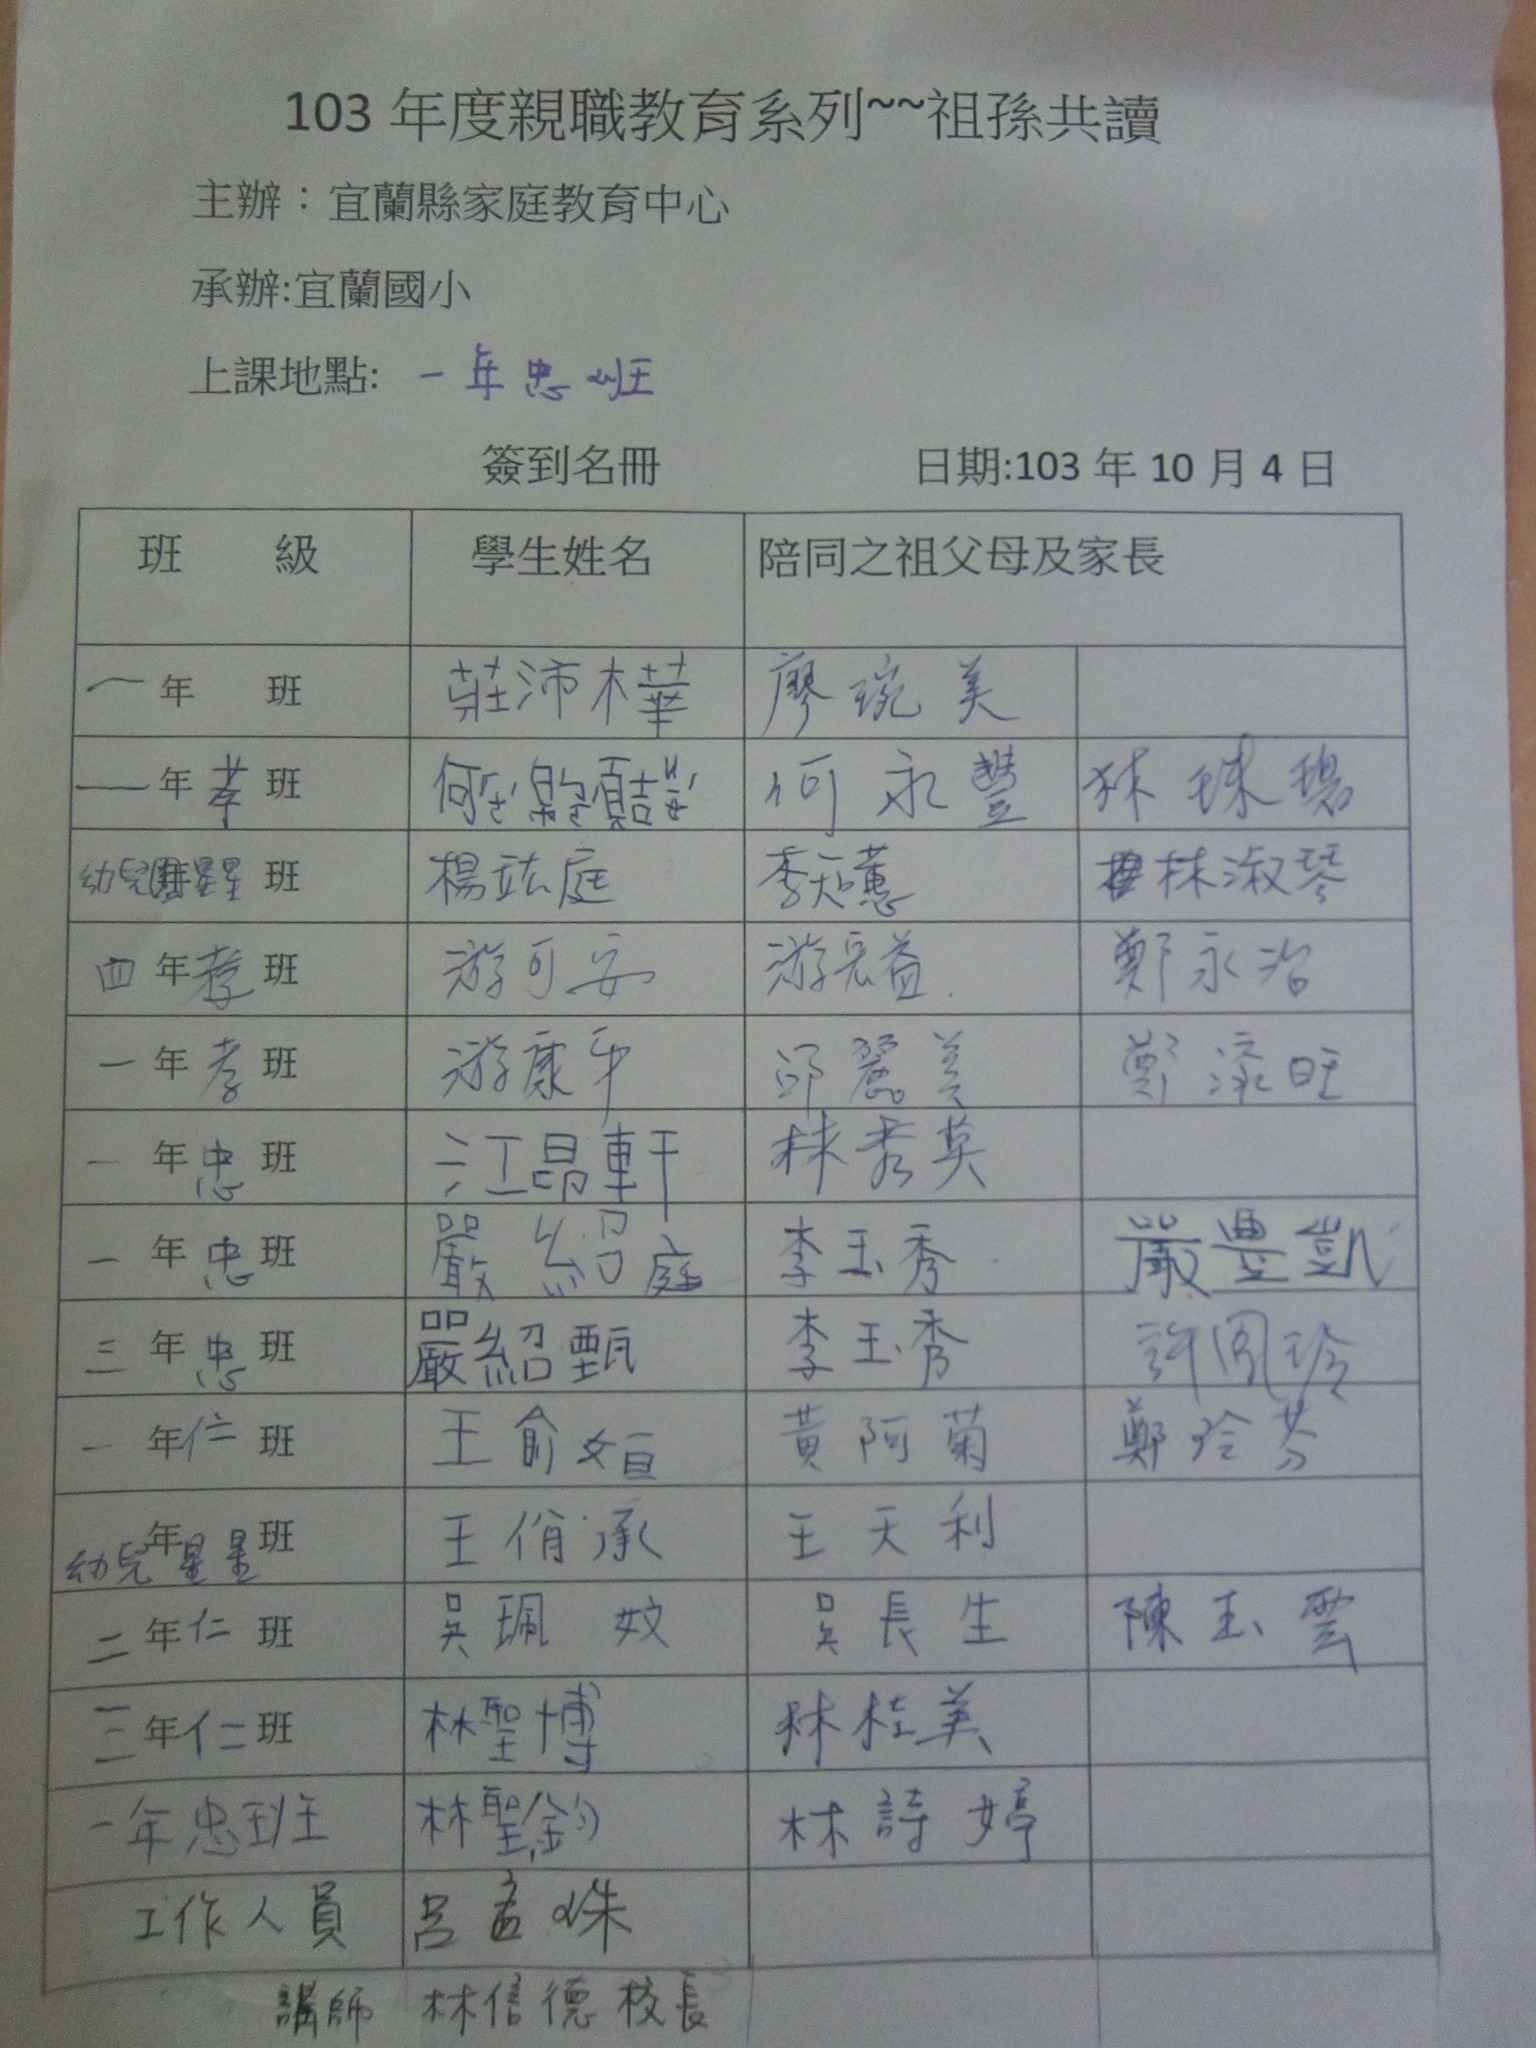 103 年度親職教育系列~~祖孫共讀
主辦：宜蘭縣家庭教育中心
承辦:宜蘭國小
上課地點: 一年忠班
簽到名冊 日期:103 年 10 月 4 日
班 級 學生姓名 陪同之祖父母及家長
一年 班 莊沛樺 廖琬美
一年孝班 何 何永豐 林珠碧
幼兒園星星班 楊竑庭 李知蕙 林淑琴
四年孝班 游可安 游宏益 鄭永治
一年孝班 游康平 邱麗美 鄭添旺
一年忠班 江晶軒 林秀英
一年忠班 嚴紹庭 李玉秀 嚴豊凱
三年忠班 嚴紹甄 李玉秀 許鳳玲
一年仁班 王俞姮 黃阿菊 鄭玲芬
幼兒星星年班 王俏承 王天利
二年仁班 吳珮妏 吳長生 陳玉雲
三年仁班 林聖博 林桂美
一年忠班 林聖鈞 林詩婷
工作人員 呂孟姝
講師 林信德校長